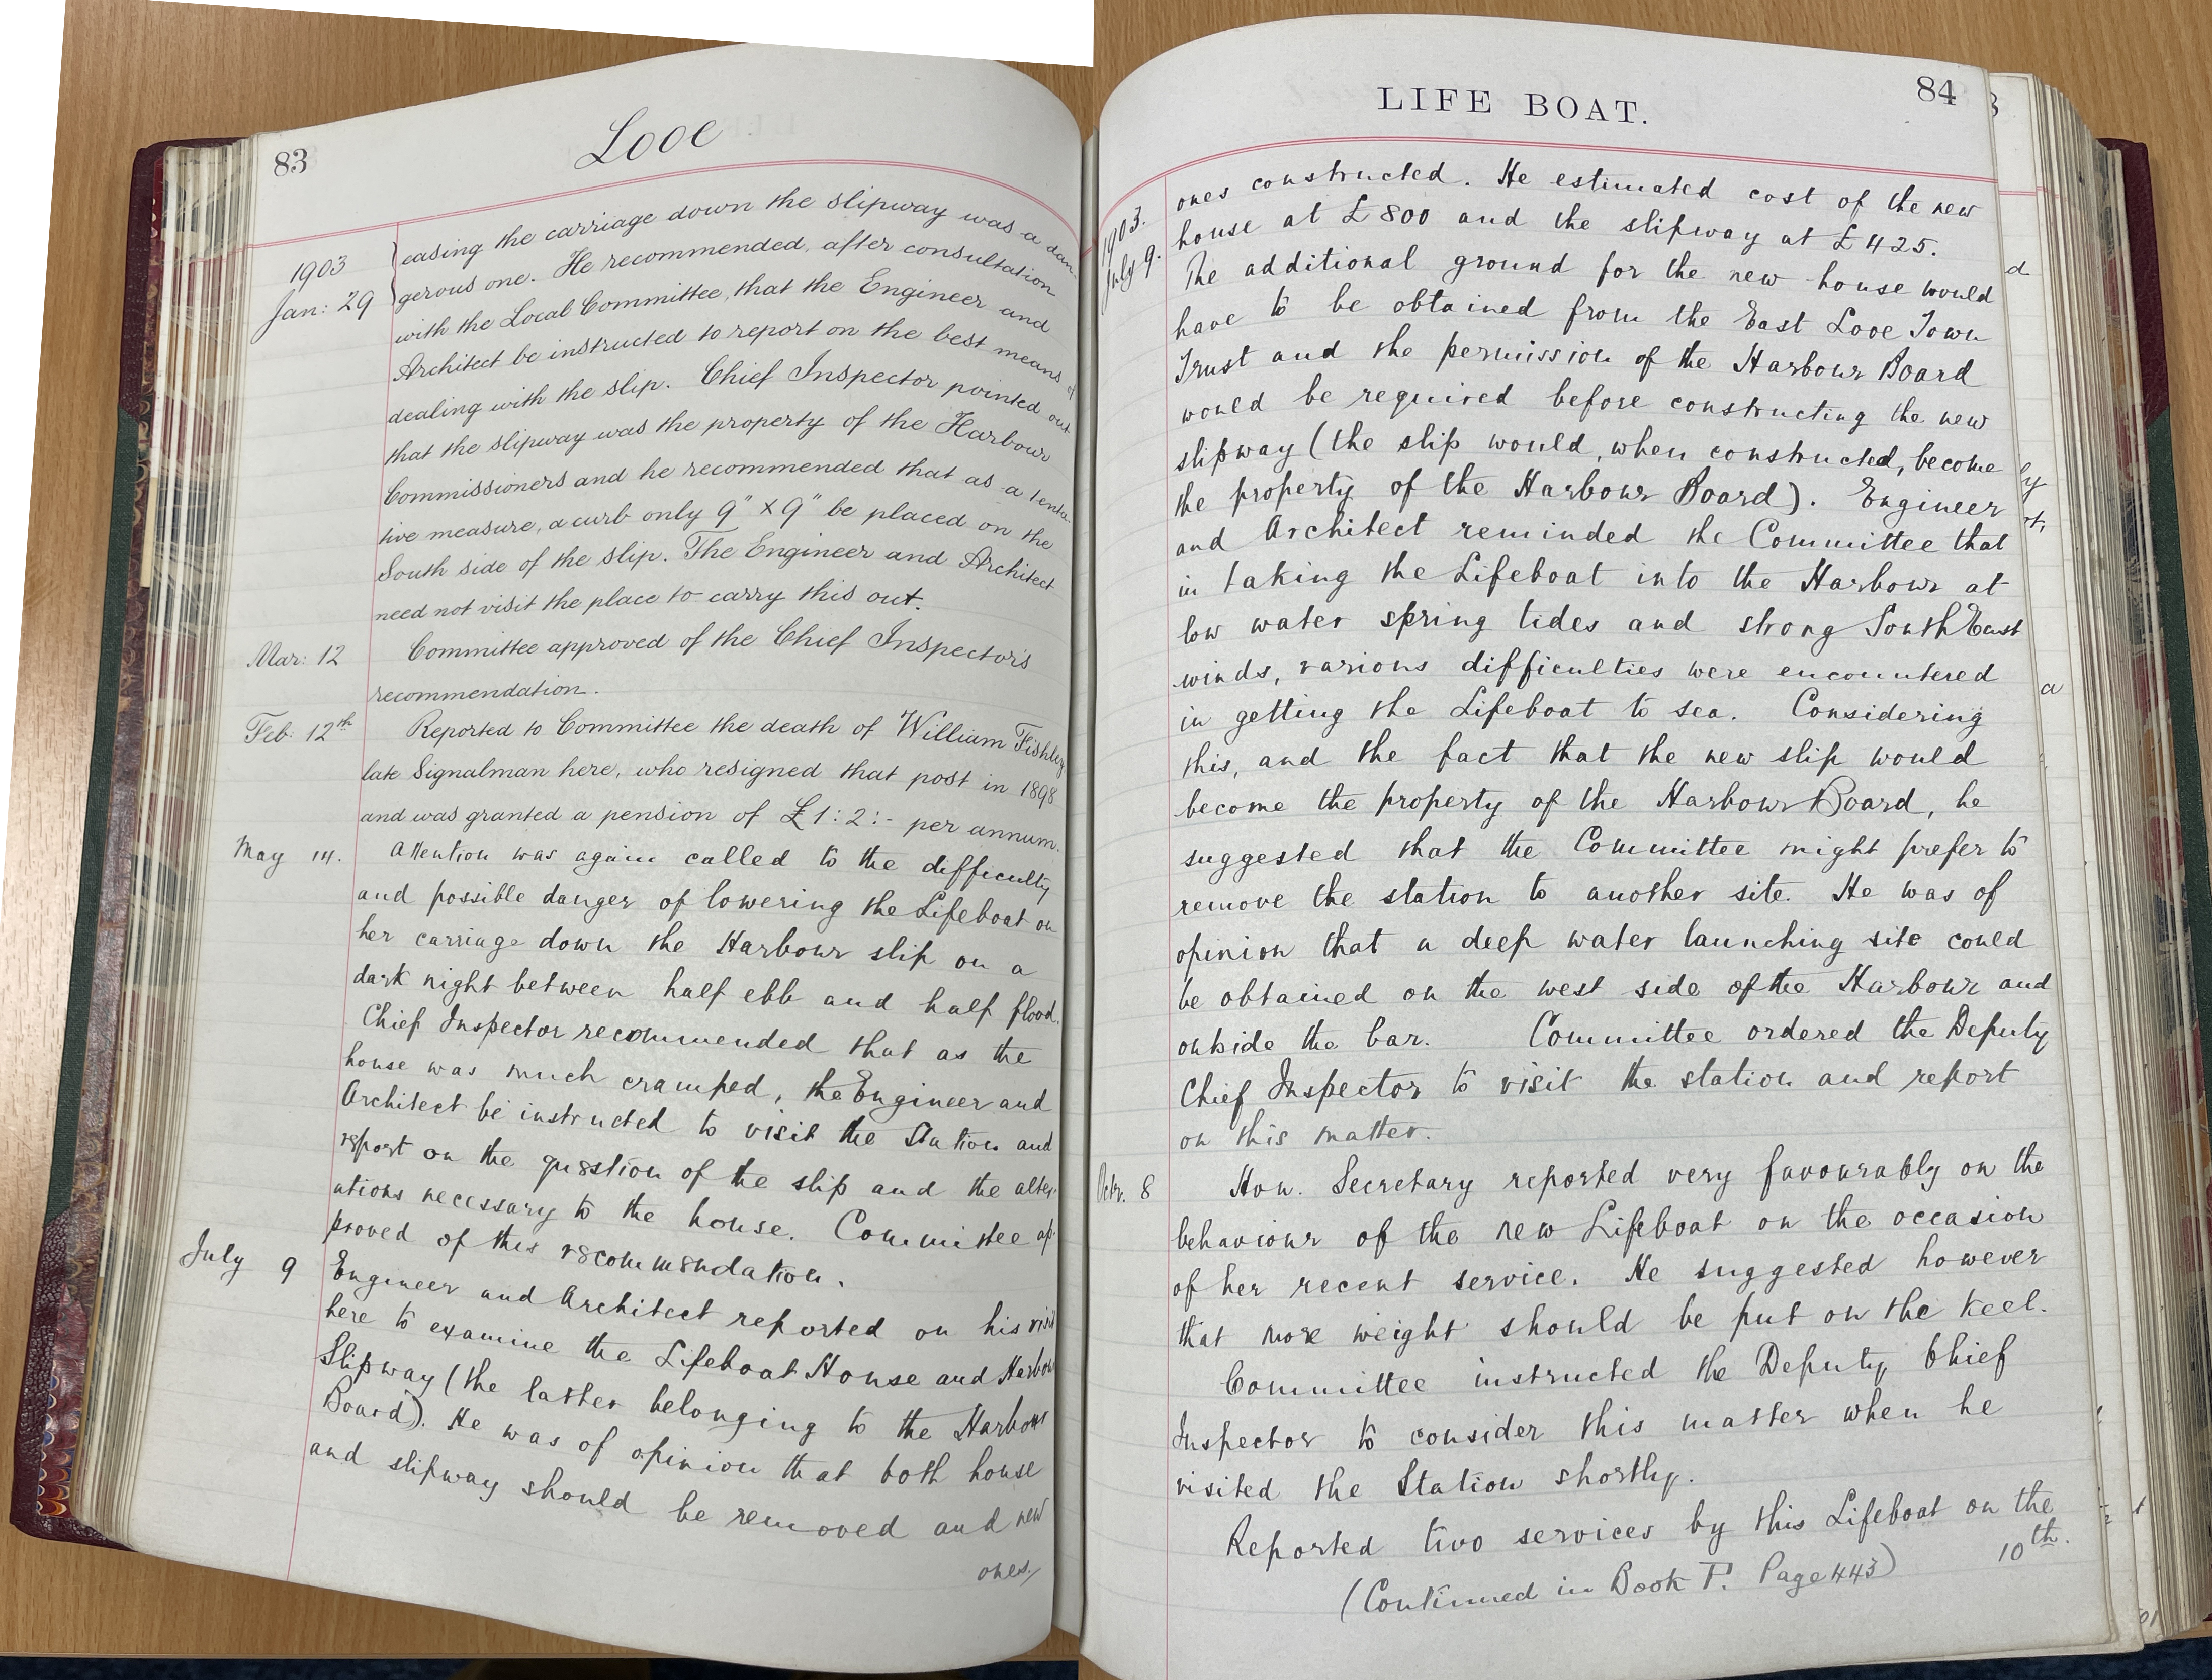 83
Looe
1903
Jan: 29
easing the carriage down the slipway was a dan-
gerous one. He recommended, after consultation
with the Local Committee, that the Engineer and
Architect be instructed to report on the best means of
dealing with the slip. Chief Inspector pointed out
that the slipway was the property of the Harbour
Commissioners and he recommended that as a tenta-
tive measure, a curb only 9" x 9" be placed on the
South side of the slip. The Engineer and Architect
need not visit the place to carry this out.
Mar: 12 Committee approved of the Chief Inspector's
recommendation.
Feb: 12th Reported to Committee the death of William Fishley
late Signalman here, who resigned that post in 1898
and was granted a pension of £1:2:- per annum.
May 14. Attention was again called to the difficulty
and possible danger of lowering the Lifeboat on
her carriage down the Harbour slip on a
dark night between half ebb and half flood.
Chief Inspector recommended that as the
house was much cramped, the Engineer and
Architect be instructed to visit the Station and
report on the question of the slip and the alter-
ations necessary to the house. Committee ap-
proved of this recommendation.
July 9 Engineer and Architect reported on his visit
here to examine the Lifeboat House and Harbour
Slipway (the latter belonging to the Harbour
Board). He was of opinion that both house
and slipway should be removed and new
ones/
LIFE BOAT.
84
1903.
July 9.
ones constructed. He estimated cost of the new
house at £800 and the slipway at £425.
The additional ground for the new house would
have to be obtained from the East Looe Town
Trust and the permission of the Harbour Board
would be required before constructing the new
slipway (the slip would, when constructed, become
the property of the Harbour Board). Engineer
and Architect reminded the Committee that
in taking the Lifeboat into the Harbour at
low water spring tides and strong South East
winds, various difficulties were encountered
in getting the Lifeboat to sea. Considering
this, and the fact that the new slip would
become the property of the Harbour Board, he
suggested that the Committee might prefer to
remove the station to another site. He was of
opinion that a deep water launching site could
be obtained on the west side of the Harbour and
outside the bar. Committee ordered the Deputy
Chief Inspector to visit the station and report
on this matter.
Octr. 8 Hon. Secretary reported very favourably on the
behaviour of the new Lifeboat on the occasion
of her recent service. He suggested however
that more weight should be put on the keel.
Committee instructed the Deputy Chief
Inspector to consider this matter when he
visited the Station shortly.
Reported two services by this Lifeboat on the
10th.
(Continued in Book F. Page 443)